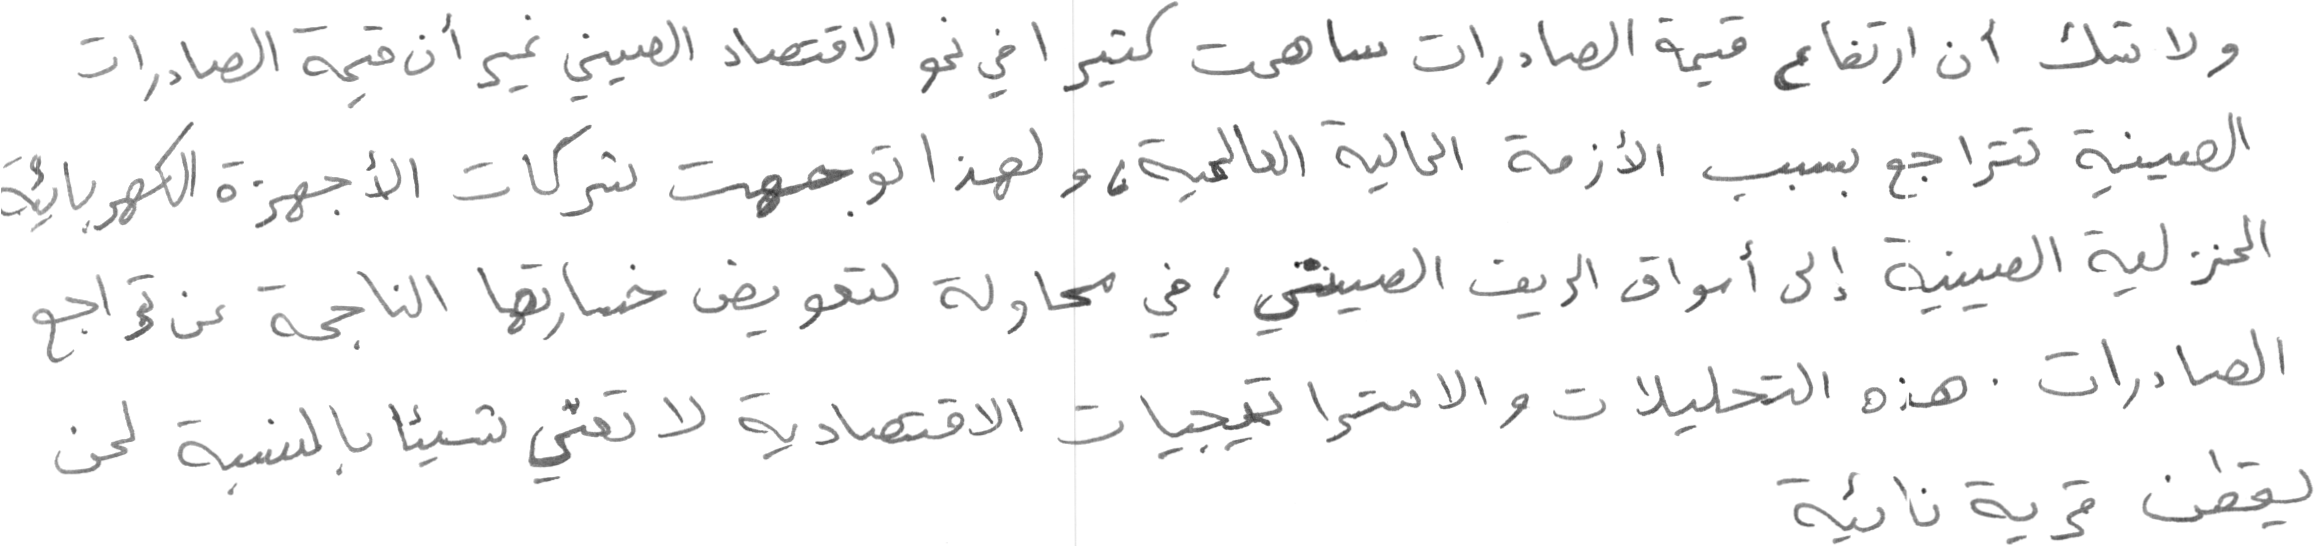 ولا شك أن ارتفاع قيمة الصادرات ساهمت كثيرا في نمو الاقتصاد الصيني غير أن قيمة الصادرات
الصينية تتراجع بسبب الأزمة المالية العالمية، ولهذا توجهت شركات الأجهزة الكهربائية
المنزلية الصينية إلى أسواق الريف الصيني، في محاولة لتعويض خسارتها الناجمة عن تراجع
الصادرات. هذه التحليلات والاستراتيجيات الاقتصادية لا تعني شيئا بالنسبة لمن
يقطن قرية نائية